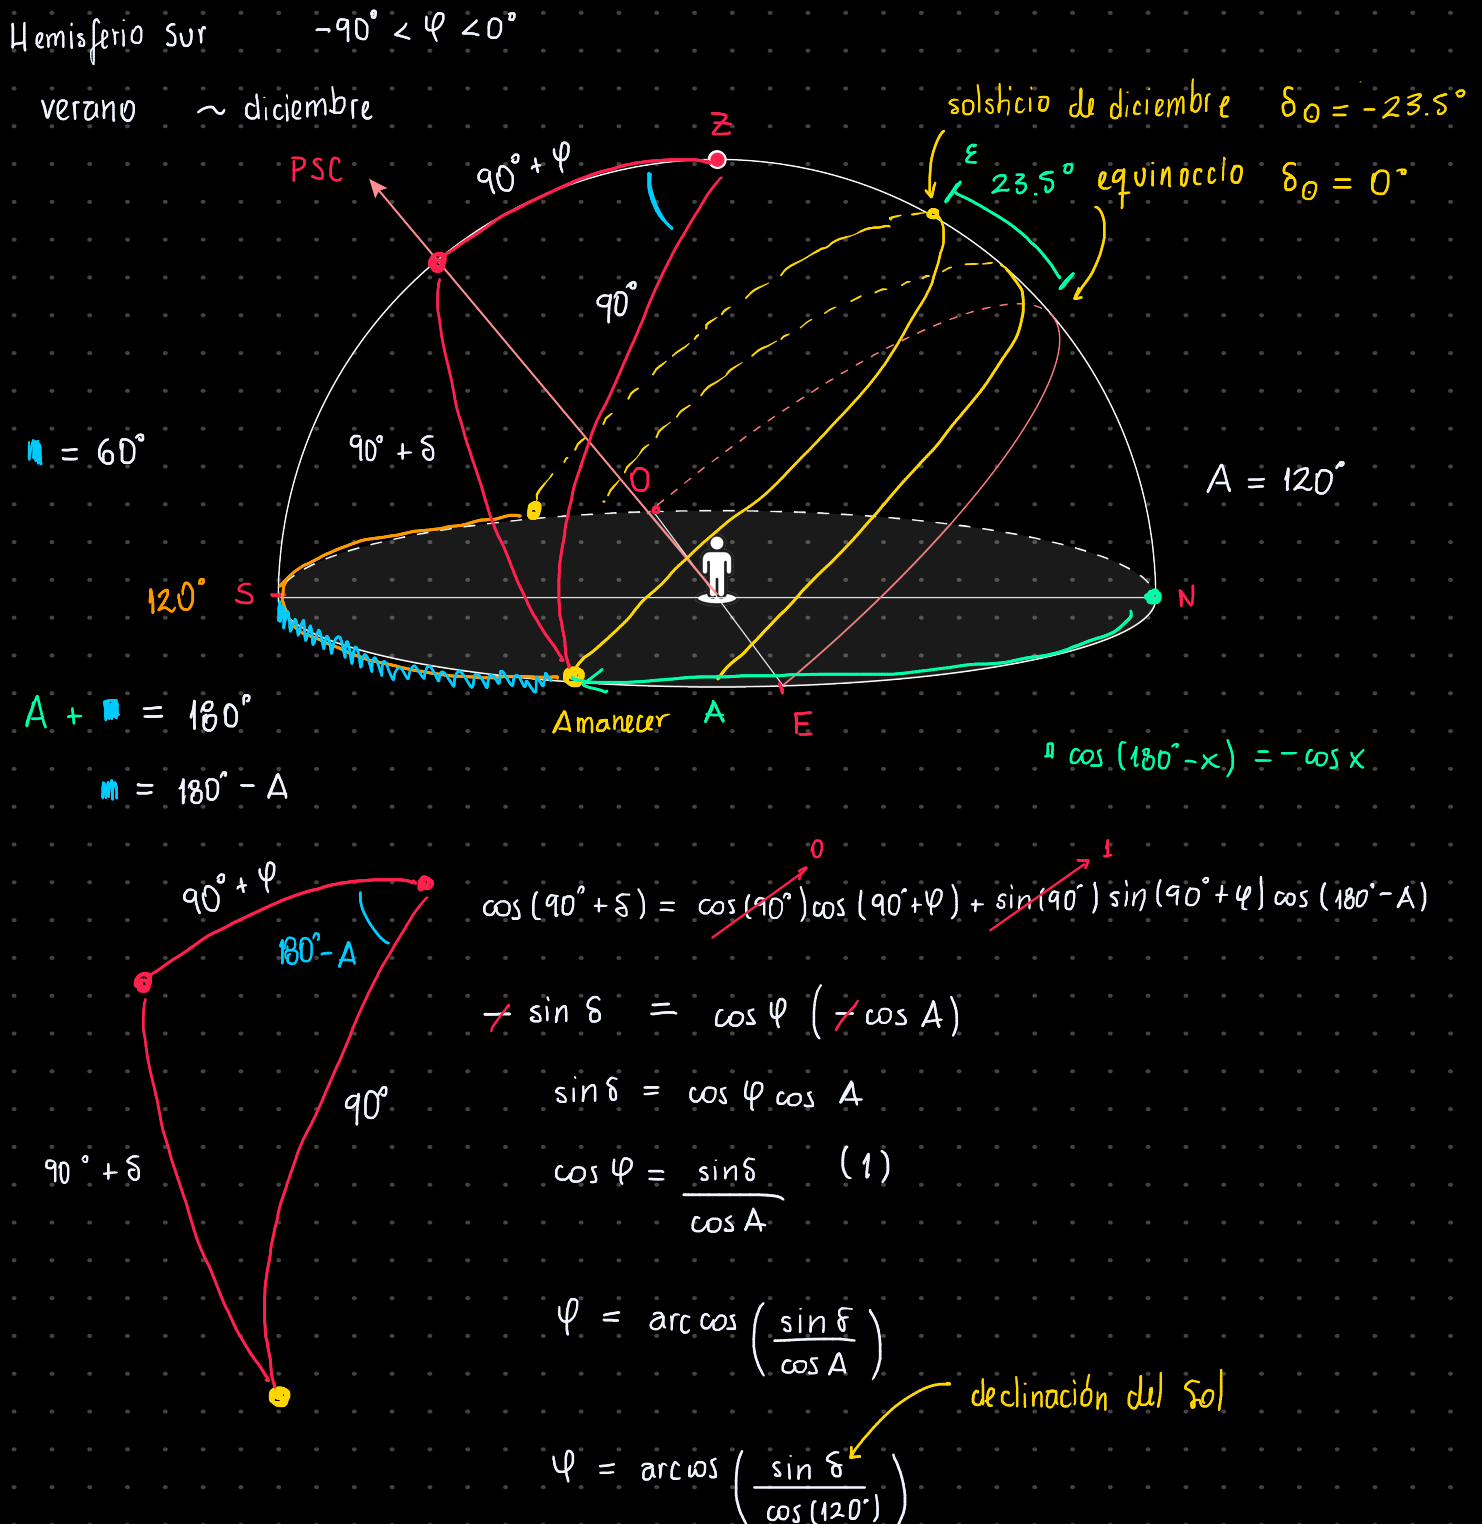 Hemisferio Sur -90° < φ < 0°
verano ~ diciembre
solsticio de diciembre δ⊙ = -23.5°
Z
PSC
90° + φ
ε
23.5°
equinoccio δ⊙ = 0°
90°
90° + δ
= 60°
O
A = 120°
120°
S
N
A + = 180°
Amanecer
A
E
cos (180° - x) = - cos x
= 180° - A
90° + φ
180° - A
90° + δ
90°
0
1
cos (90° + δ) = cos (90°) cos (90° + φ) + sin (90°) sin (90° + φ) cos (180° - A)
- sin δ = cos φ (- cos A)
sin δ = cos φ cos A
cos φ = sin δ / cos A (1)
φ = arc cos (sin δ / cos A)
declinación del Sol
φ = arc cos (sin δ / cos (120°))